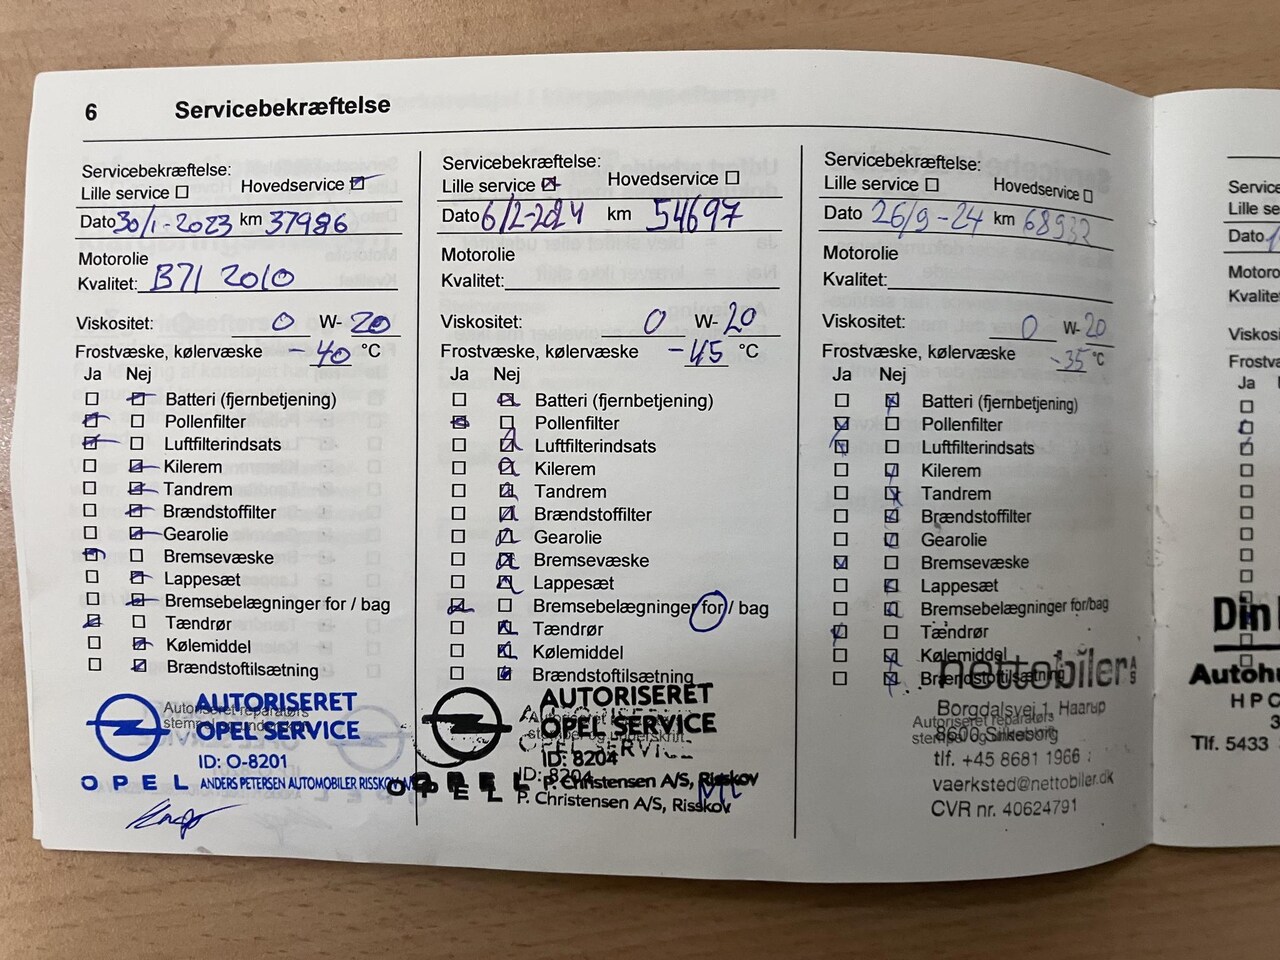 6 Servicebekræftelse
Servicebekræftelse:
Lille service Hovedservice
Dato 30/1-2023 km 37986
Motorolie
Kvalitet: B71 2010
Viskositet: 0 W-20
Frostvæske, kølervæske -40 °C
Ja Nej
Batteri (fjernbetjening)
Pollenfilter
Luftfilterindsats
Kilerem
Tandrem
Brændstoffilter
Gearolie
Bremsevæske
Lappesæt
Bremsebelægninger for / bag
Tændrør
Kølemiddel
Brændstoftilsætning
Autoriseret reparatørs
AUTORISERET
OPEL SERVICE
ID: O-8201
OPEL ANDERS PETERSEN AUTOMOBILER RISSKOV
Servicebekræftelse:
Lille service Hovedservice
Dato 6/2-2024 km 54697
Motorolie
Kvalitet:
Viskositet: 0 W-20
Frostvæske, kølervæske -45 °C
Ja Nej
Batteri (fjernbetjening)
Pollenfilter
Luftfilterindsats
Kilerem
Tandrem
Brændstoffilter
Gearolie
Bremsevæske
Lappesæt
Bremsebelægninger for / bag
Tændrør
Kølemiddel
Brændstoftilsætning
AUTORISERET
OPEL SERVICE
ID: 8204
P. Christensen A/S, Risskov
OPEL P. Christensen A/S, Risskov
Servicebekræftelse:
Lille service Hovedservice
Dato 26/9-24 km
Motorolie
Kvalitet:
Viskositet: 0 W-20
Frostvæske, kølervæske -35 °C
Ja Nej
Batteri (fjernbetjening)
Pollenfilter
Luftfilterindsats
Kilerem
Tandrem
Brændstoffilter
Gearolie
Bremsevæske
Lappesæt
Bremsebelægninger for/bag
Tændrør
Kølemiddel
Brændstoftilsætning
nettobiler A/S
Borgdalsvej 1, Haarup
8600 Silkeborg
Autoriseret reparatørs
stempel og underskrift
tlf. +45 8681 1966
vaerksted@nettobiler.dk
CVR nr. 40624791
Service
Lille se
Dato
Motoro
Kvalitet
Viskosi
Frostvæ
Ja
Din
Autohu
H P C
3
Tlf. 5433